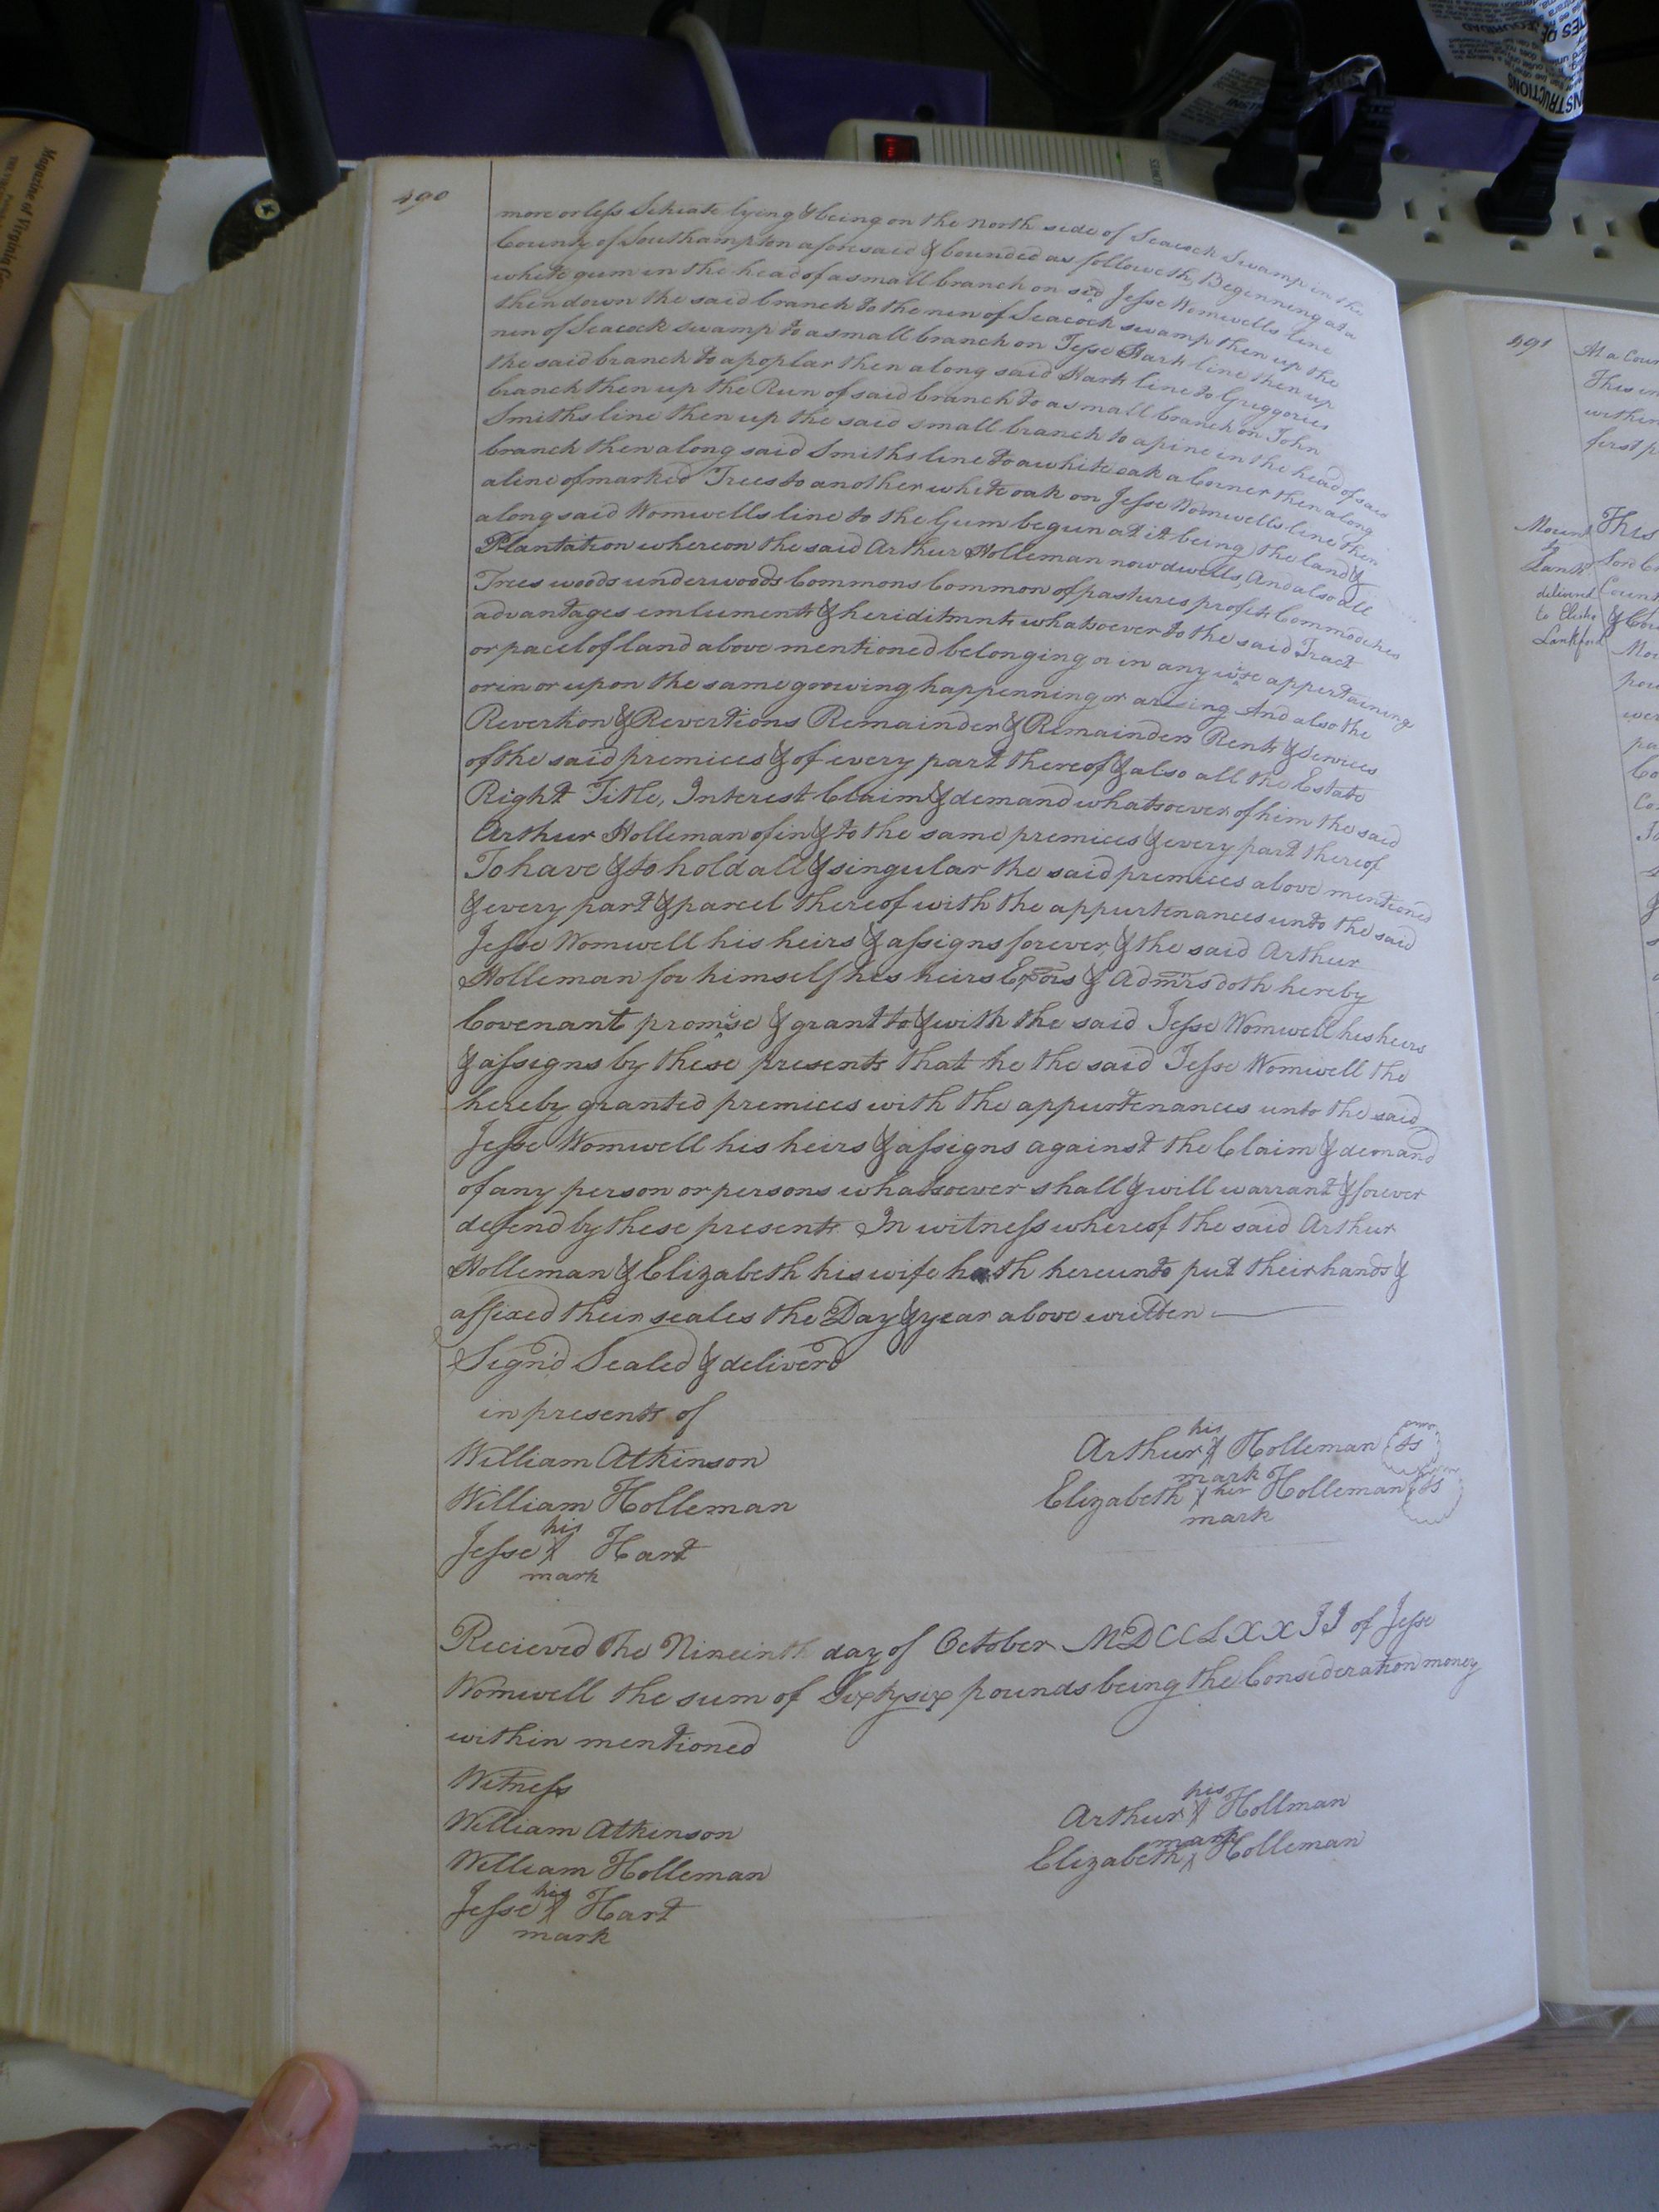 490
more or less Scituate lying & being on the North side of Seacock Swamp in the
County of Southampton aforesaid & bounded as followeth, Beginning at a
white gum in the head of a small branch on sd Jesse Womwells line
then down the said branch to the run of Seacock swamp then up the
run of Seacock swamp to a small branch on Jesse Hart line then up
the said branch to a poplar then along said Hart line to Griggories
branch then up the Run of said branch to a small branch on John
Smiths line then up the said small branch to a pine in the head of said
branch then along said Smiths line to a white oak a Corner then along
a line of marked Trees to another white oak on Jesse Womwells line then
along said Womwells line to the Gum begun at it being the land &
Plantation whereon the said Arthur Holleman now dwells, And also all
Trees woods underwoods Commons Common of pastures profits Commodities
advantages emluments & heriditmnts whatsoever to the said Tract
or pacel of land above mentioned belonging or in any wise appertaining
or in or upon the same goowing happenning or arising And also the
Revertion & Revertions Remainder & Remainders Rents & Services
of the said premices & of every part thereof & also all the Estate
Right Title, Interest Claim & demand whatsoever of him the said
Arthur Holleman of in & to the same premices & every part thereof
To have & to hold all & singular the said premices above mentioned
& every part & parcel thereof with the appurtenances unto the said
Jesse Womwell his heirs & assigns forever, & the said Arthur
Holleman for himself his heirs Exors & Admrs doth hereby
Covenant promise & grant to & with the said Jesse Womwell his heirs
& assigns by these presents that he the said Jesse Womwell the
hereby granted premices with the appurtenances unto the said
Jesse Womwell his heirs & assigns against the Claim & demand
of any person or persons whatsoever shall & will warrant & forever
defend by these presents. In witness whereof the said Arthur
Holleman & Elizabeth his wife hath hereunto put their hands &
affixed their seales the Day & year above written
Sign'd Sealed & deliver'd
in presents of
William Atkinson
William Holleman
his
Jesse X Hart
mark
his
Arthur X Holleman Ls
mark
Elizabeth X her Holleman Ls
mark
Recieved the Nineinth day of October MDCCLXXII of Jesse
Womwell the sum of Sixty six pounds being the Consideration money
within mentioned
Witness
William Atkinson
William Holleman
his
Jesse X Hart
mark
his
Arthur X Hollman
mark
Elizabeth X Holleman
491
At a Cour
This in
within
first p
Mount
to
Lankd
delivred
to Elisha
Lankford
This
Lord
Count
Mou
Magazine of Virginia
INSTRUCTIONS